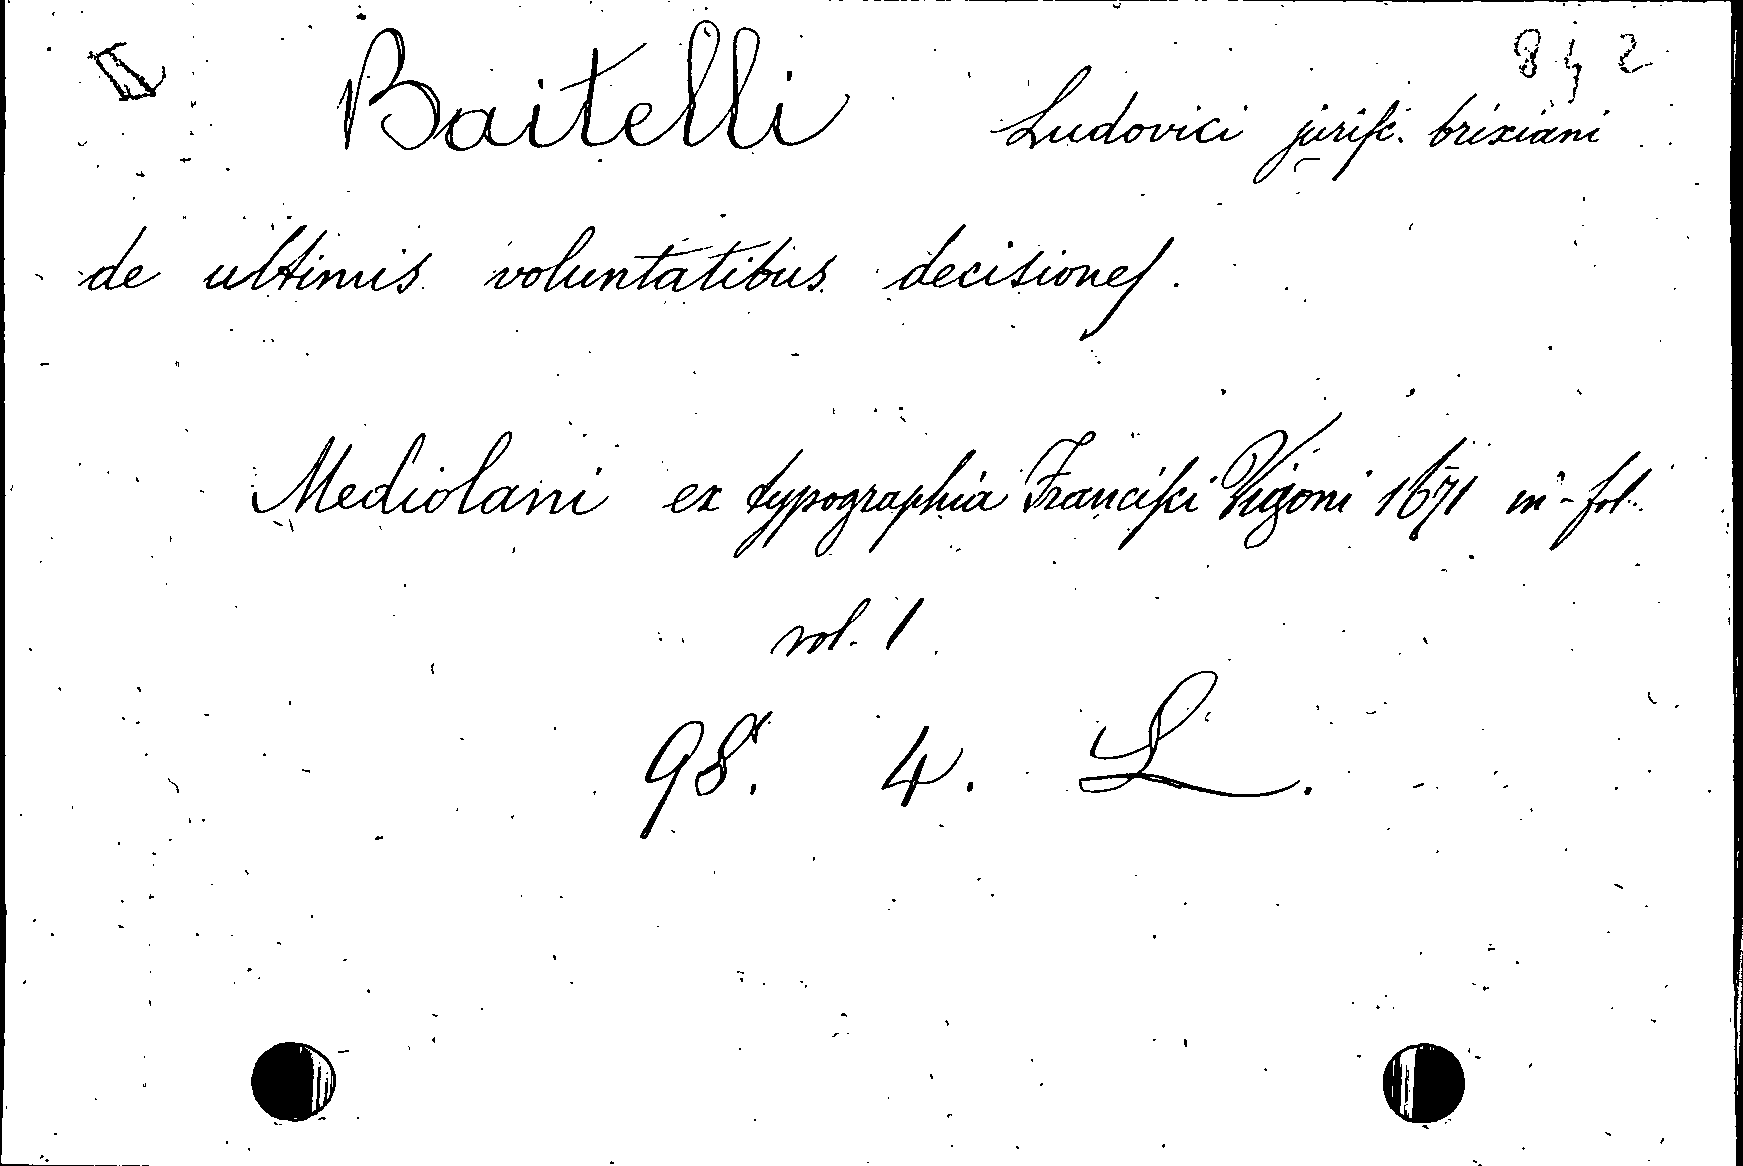 842
Baitelli Ludovici juriſc. brixiani
de ultimis voluntatibus decisioneſ.
Mediolani ex typographia Franciſci Vigoni 1671 in-fol.
vol. 1.
98. 4. L.